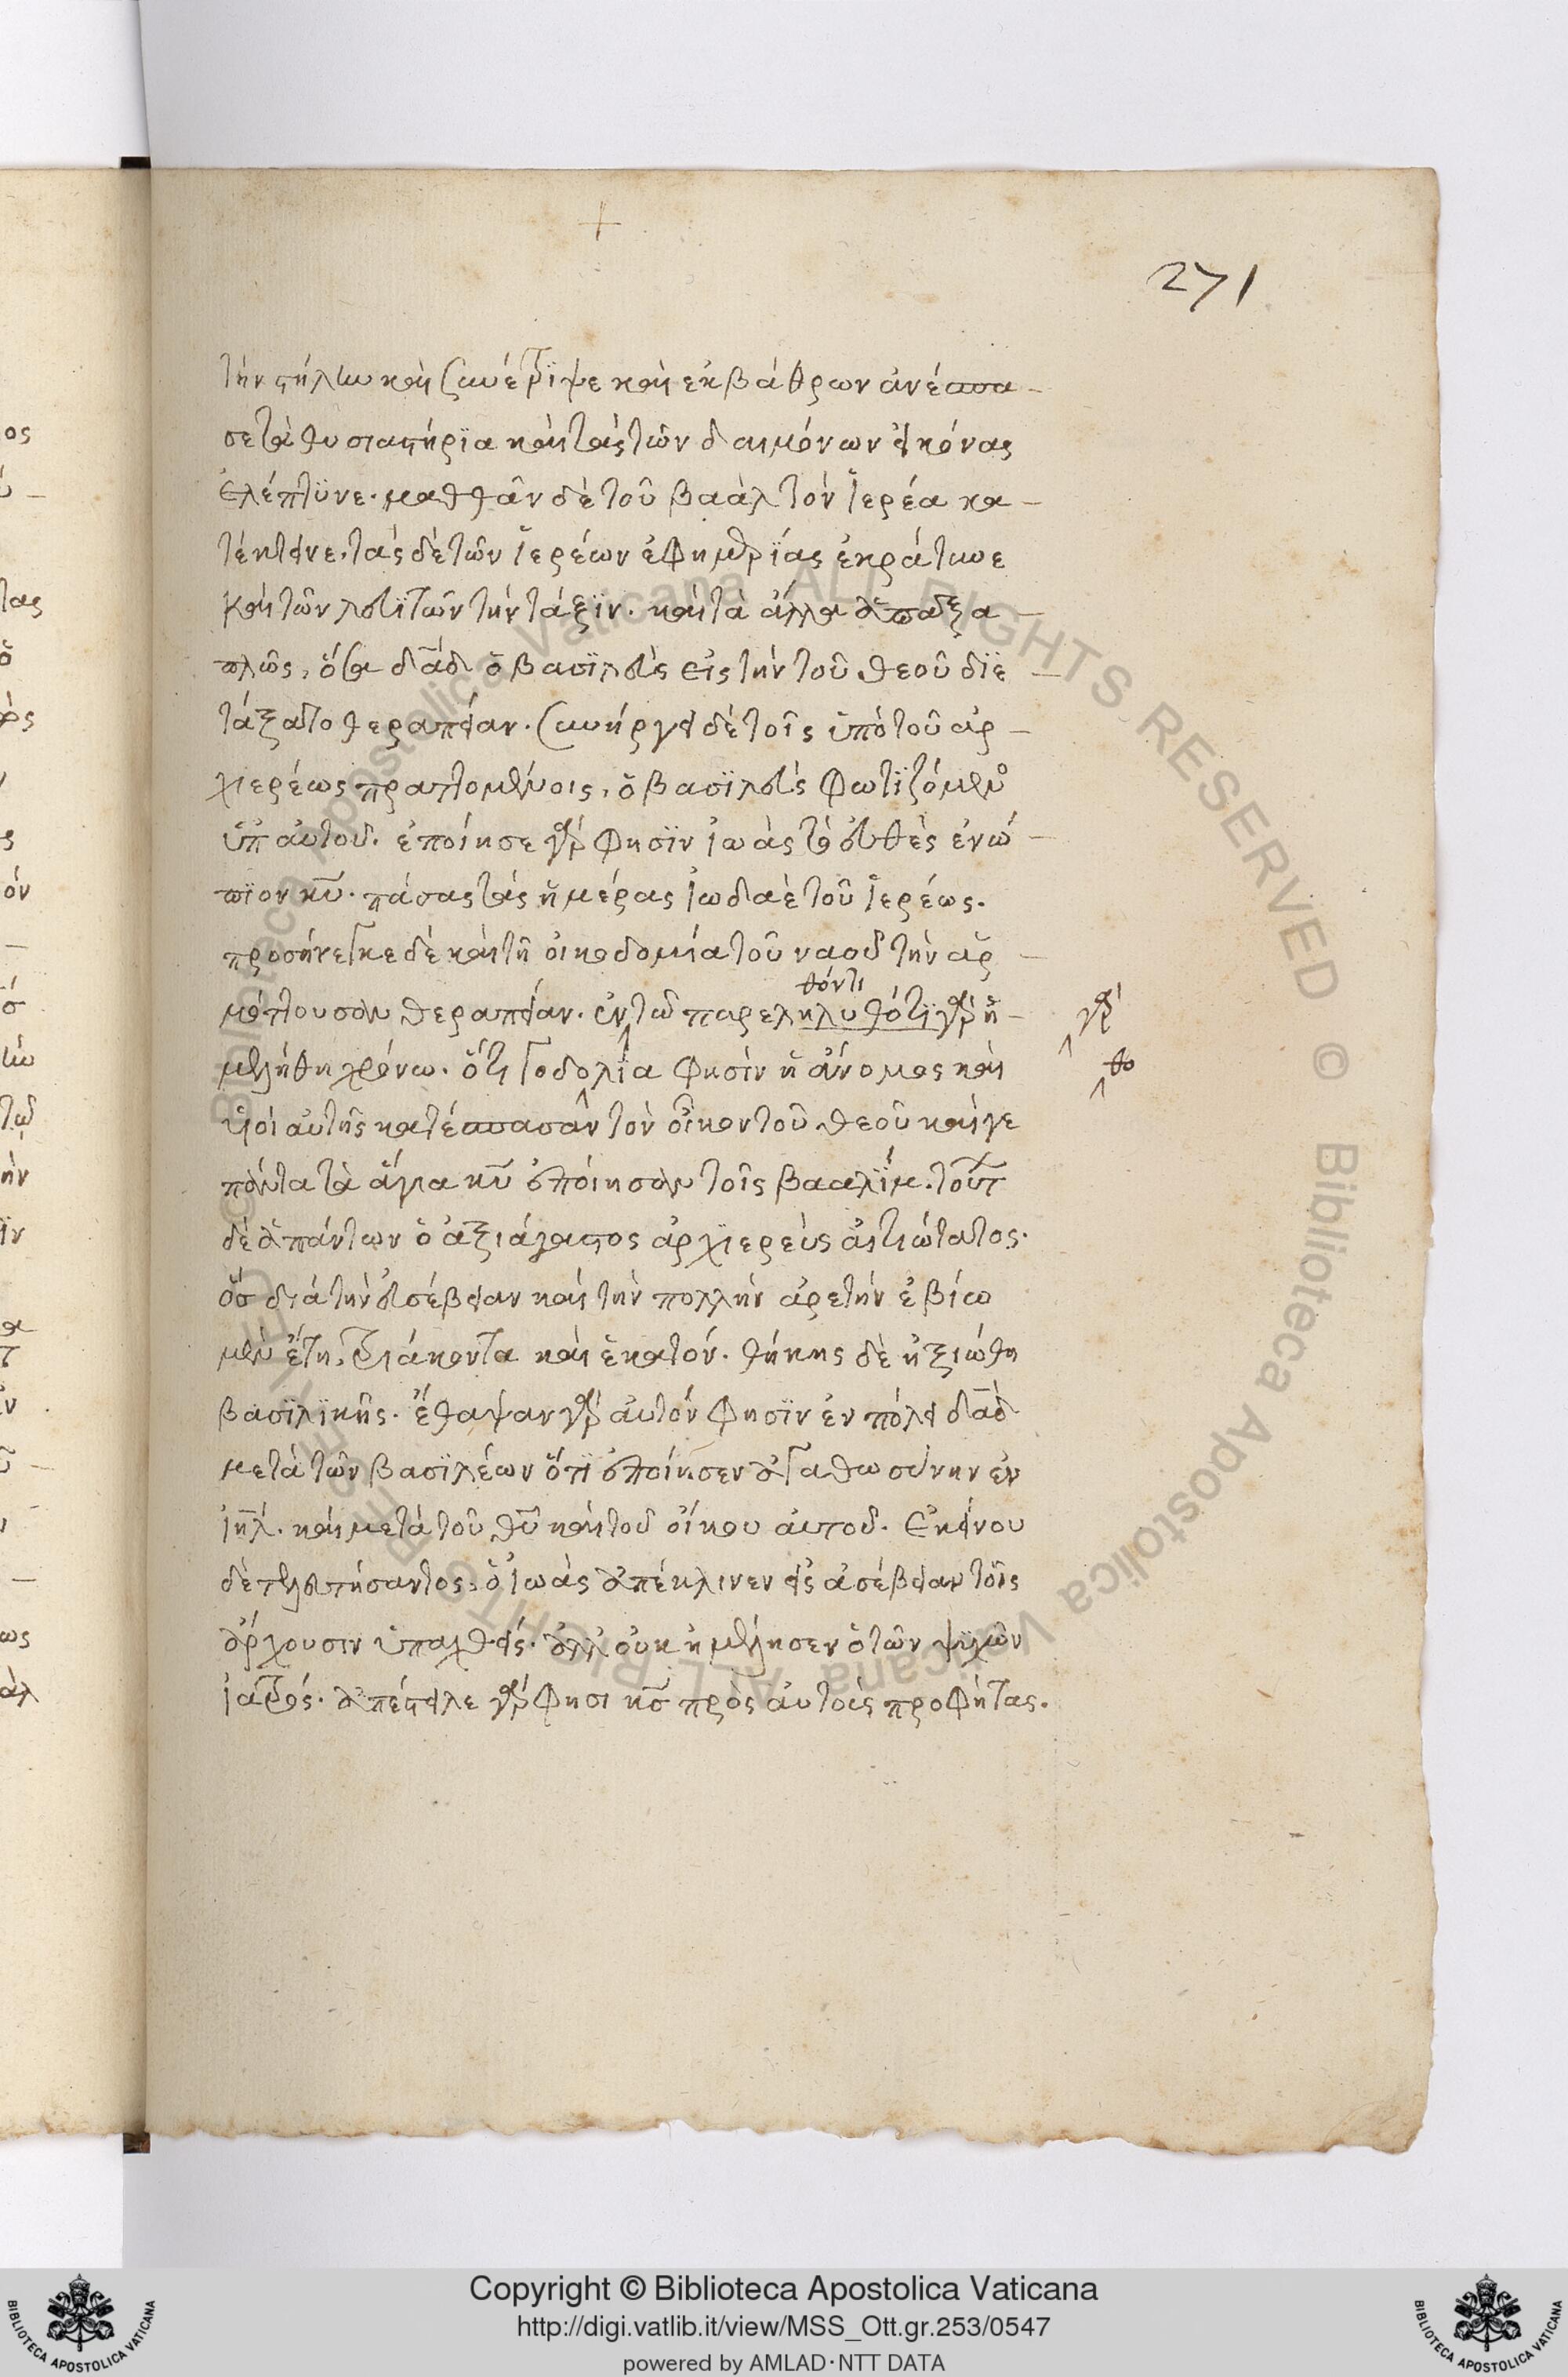 271
τὴν στήλην καὶ συνέτριψε καὶ ἐκ βάθρων ἀνέσπα-
σε τὰ θυσιαστήρια καὶ τὰς τῶν δαιμόνων εἰκόνας
ἐλέπτυνε· ματθὰν δὲ τοῦ βαὰλ τὸν ἱερέα κα-
τέκτεινε. τὰς δὲ τῶν ἱερέων ἐφημερίας ἐκράτυνε
καὶ τῶν λευϊτῶν τὴν τάξιν. καὶ τὰ ἄλλα ἅπαξ ἁ-
πλῶς, ὅσα δᾱδ ὁ βασιλεὺς εἰς τὴν τοῦ θεοῦ διε-
τάξατο θεραπείαν. συνήργει δὲ τοῖς ὑπὸ τοῦ ἀρ-
χιερέως πραττομένοις, ὁ βασιλεὺς φωτιζόμενος
ὑπ αὐτοῦ. ἐποίησε γάρ φησιν ἰωὰς τὸ εὐθὲς ἐνώ-
πιον κῡ. πάσας τὰς ἡμέρας ἰωδαὲ τοῦ ἱερέως.
προσήνεγκε δὲ καὶ τῇ οἰκοδομία τοῦ ναοῦ τὴν ἁρ-
θόντι
μόττουσαν θεραπείαν. ἐν τῶ παρεληλυθότι γὰρ ἠ- γρ
μελήθη χρόνω. ὅτι γοδολία φησὶν ἡ ἄνομος καὶ θο
υἱοὶ αὐτῆς κατέσπασαν τὸν οἶκον τοῦ θεοῦ καί γε
πάντα τὰ ἅγια κῡ ἐποίησαν τοῖς βααλίμ. τούτ
δὲ ἁπάντων ὁ ἀξιάγαστος ἀρχιερεὺς αἰτιώτατος.
ὃς διὰ τὴν εὐσέβειαν καὶ τὴν πολλὴν ἀρετὴν ἐβίω
μὲν ἔτη, τριάκοντα καὶ ἑκατόν. θήκης δὲ ἠξιώθη
βασιλικῆς. ἔθαψαν γὰρ αὐτόν φησιν ἐν πόλει δᾱδ
μετὰ τῶν βασιλέων ὅτι ἐποίησεν ἀγαθωσύνην ἐν
ιηλ. καὶ μετὰ τοῦ θῡ καὶ τοῦ οἴκου αὐτοῦ. ἐκείνου
δὲ τελευτήσαντος, ὁ ἰωὰς ἀπέκλινεν εἰς ἀσέβειαν τοῖς
ἄρχουσιν ὑπαχθείς. ἀλλ οὐκ ἠμέλησεν ὁ τῶν ψυχῶν
ἰατρός. ἀπέστειλε γάρ φησι κς πρὸς αὐτοὺς προφήτας.
Copyright © Biblioteca Apostolica Vaticana
http://digi.vatlib.it/view/MSS_Ott.gr.253/0547
powered by AMLAD·NTT DATA